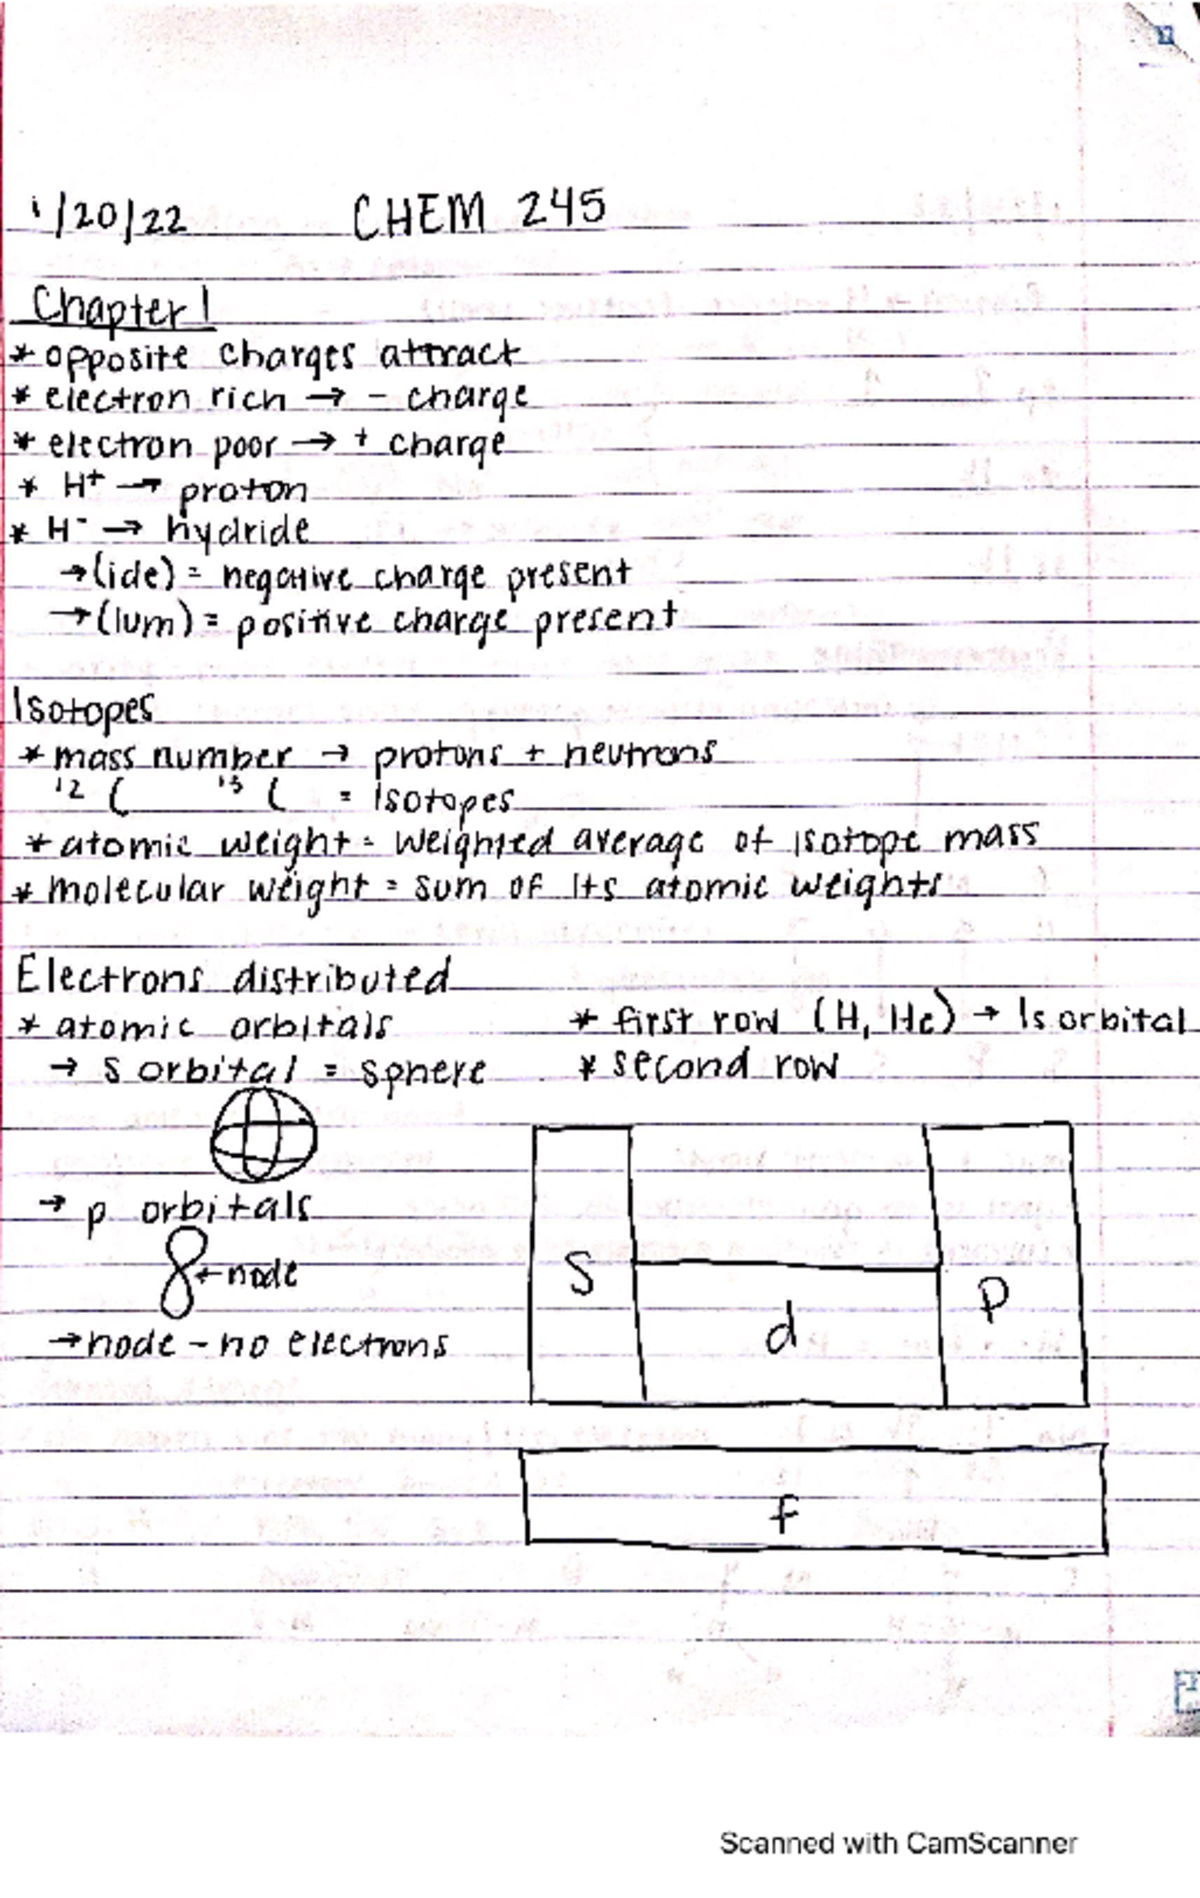 1/20/22 CHEM 245
Chapter 1
* opposite charges attract
* electron rich → - charge
* electron poor → + charge
* H⁺ → proton
* H⁻ → hydride
→ (ide) = negative charge present
→ (ium) = positive charge present
Isotopes
* mass number → protons + neutrons
¹² C ¹³ C = isotopes
* atomic weight = weighted average of isotope mass
* molecular weight = sum of its atomic weights
Electrons distributed
* atomic orbitals
→ s orbital = sphere
→ p orbitals
← node
→ node - no electrons
* first row (H, He) → 1s orbital
* second row
S
d
P
f
Scanned with CamScanner